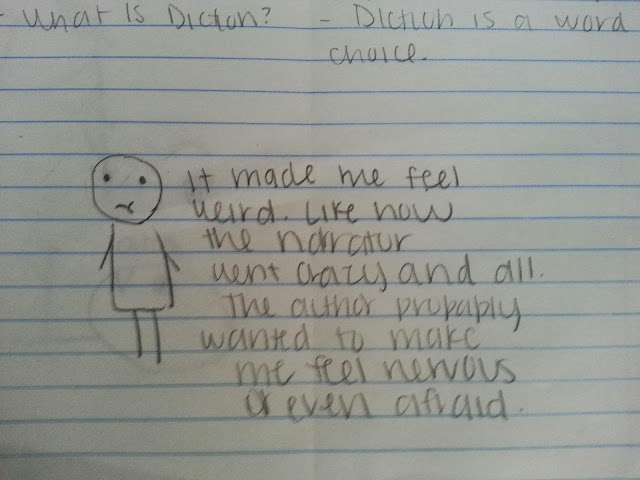 - What Is Dicton? - Diction is a word
choice.
It made me feel
weird. Like how
the narrator
went crazy and all.
The author propably
wanted to make
me feel nervous
or even afraid.